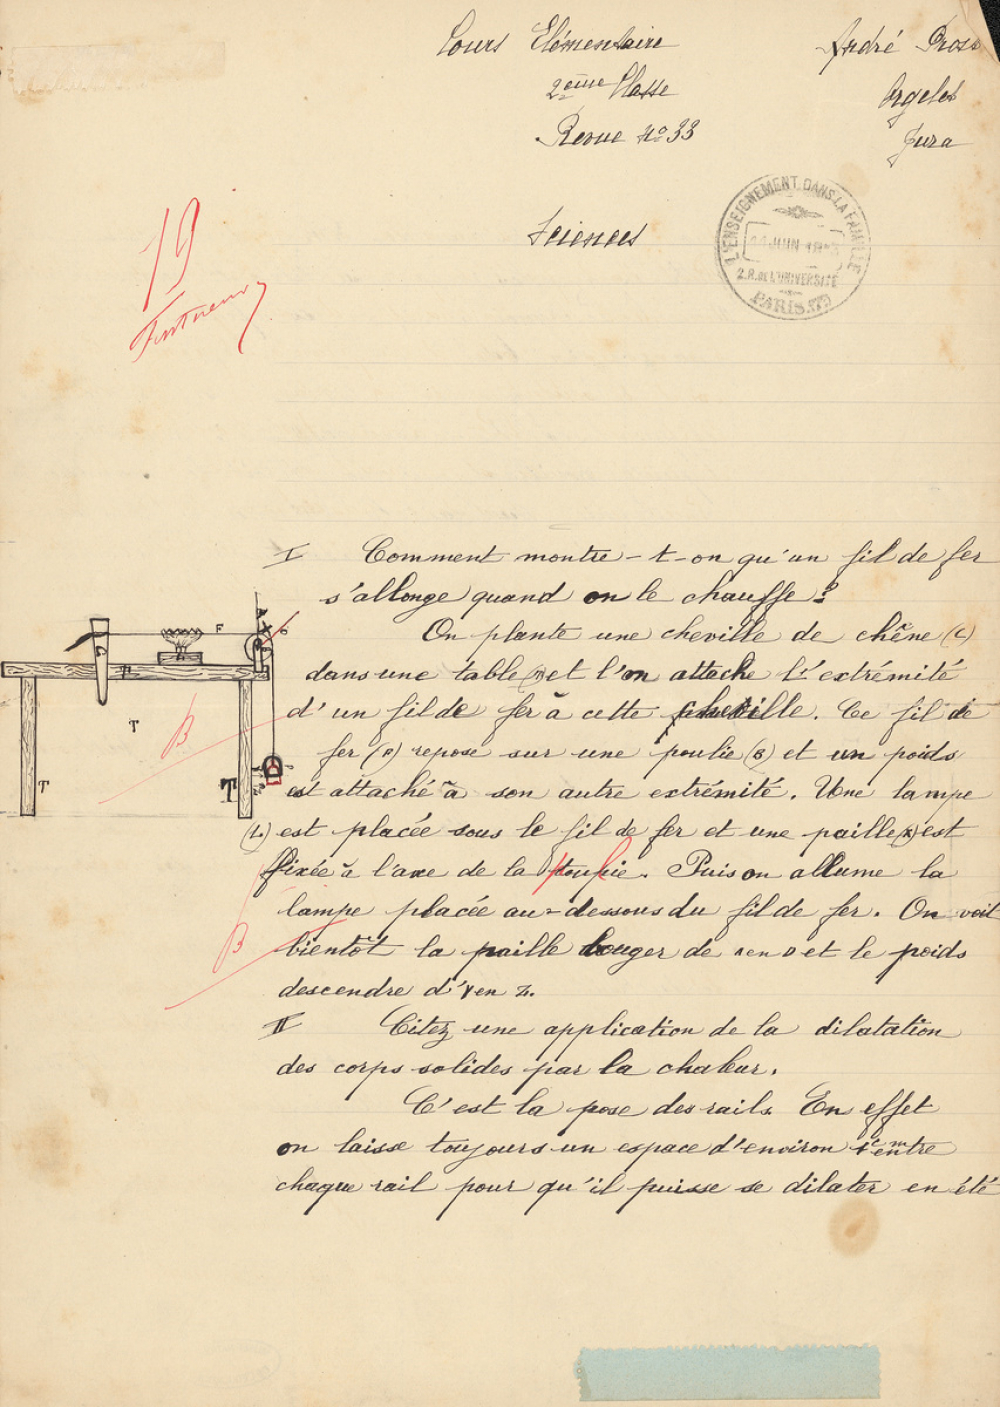 Cours Elémentaire
2ème Classe
Revue No 33
André Pros
Orgelet
Jura
Sciences
L'ENSEIGNEMENT DANS LA FAMILLE
JUIN
2.R. DE L'UNIVERSITÉ
PARIS
19
I Comment montre-t-on qu'un fil de fer
s'allonge quand on le chauffe?
On plante une cheville de chêne (C)
dans une table et l'on attache l'extrémité
d'un fil de fer à cette cheville. Ce fil de
fer (F) repose sur une poulie (B) et un poids
est attaché à son autre extrémité. Une lampe
(L) est placée sous le fil de fer et une paille est
fixée à l'axe de la poulie. Puis on allume la
lampe placée au-dessous du fil de fer. On voit
bientôt la paille bouger de en D et le poids
descendre d'Y en Z.
F
T
T
T
B
B
II Citez une application de la dilatation
des corps solides par la chaleur.
C'est la pose des rails. En effet
on laisse toujours un espace d'environ entre
chaque rail pour qu'il puisse se dilater en été